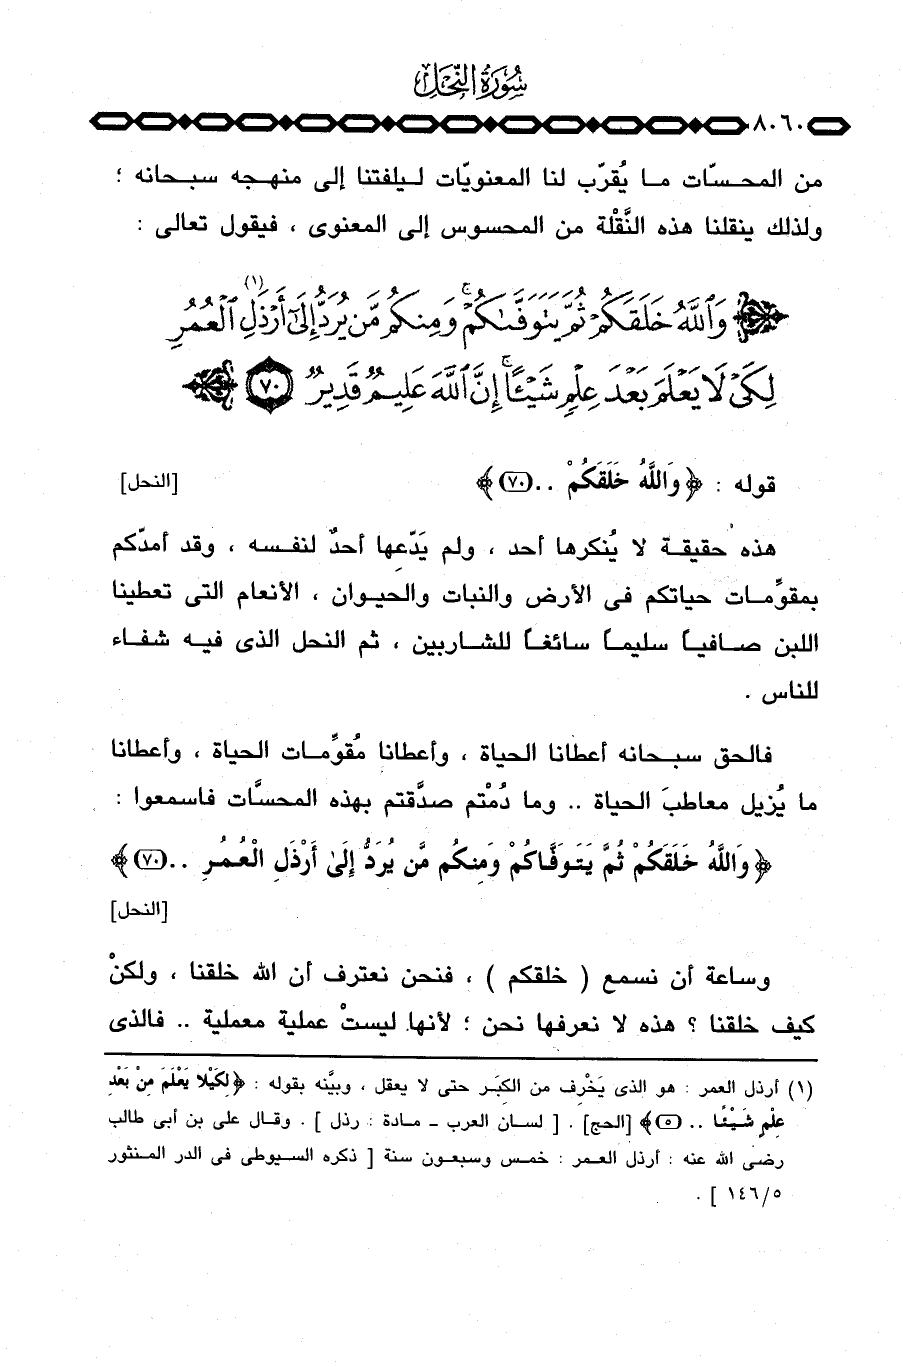 سُورَةُ النَّحْلِ
٨٠٦٠
من المحسّات ما يُقرّب لنا المعنويّات ليلفتنا إلى منهجه سبحانه ؛
ولذلك ينقلنا هذه النَّقْلة من المحسوس إلى المعنوى ، فيقول تعالى :
﴿ وَٱللَّهُ خَلَقَكُمْ ثُمَّ يَتَوَفَّىٰكُمْ ۚ وَمِنكُم مَّن يُرَدُّ إِلَىٰٓ أَرْذَلِ (١) ٱلْعُمُرِ
لِكَىْ لَا يَعْلَمَ بَعْدَ عِلْمٍ شَيْـًٔا ۚ إِنَّ ٱللَّهَ عَلِيمٌ قَدِيرٌ ٧٠ ﴾
قوله : ﴿ وَاللَّهُ خَلَقَكُمْ .. (٧٠) ﴾ [النحل]
هذه حقيقة لا يُنكرها أحد ، ولم يَدّعِها أحدٌ لنفسه ، وقد أمدّكم
بمقوِّمات حياتكم فى الأرض والنبات والحيوان ، الأنعام التى تعطينا
اللبن صافياً سليماً سائغاً للشاربين ، ثم النحل الذى فيه شفاء
للناس .
فالحق سبحانه أعطانا الحياة ، وأعطانا مُقوِّمات الحياة ، وأعطانا
ما يُزيل معاطبَ الحياة .. وما دُمْتم صدَّقتم بهذه المحسَّات فاسمعوا :
﴿ وَاللَّهُ خَلَقَكُمْ ثُمَّ يَتَوَفَّاكُمْ وَمِنكُم مَّن يُرَدُّ إِلَىٰ أَرْذَلِ الْعُمُرِ .. (٧٠) ﴾
[النحل]
وساعة أن نسمع ( خلقكم ) ، فنحن نعترف أن الله خلقنا ، ولكنْ
كيف خلقنا ؟ هذه لا نعرفها نحن ؛ لأنها ليستْ عملية معملية .. فالذى
(١) أرذل العمر : هو الذى يَخْرِف من الكِبَر حتى لا يعقل ، وبيَّنه بقوله : ﴿ لِكَيْلا يَعْلَمَ مِنْ بَعْدِ
عِلْمٍ شَيْئًا .. (٥) ﴾ [الحج] . [ لسان العرب - مادة : رذل ] . وقال على بن أبى طالب
رضى الله عنه : أرذل العمر : خمس وسبعون سنة [ ذكره السيوطى فى الدر المنثور
١٤٦/٥ ] .